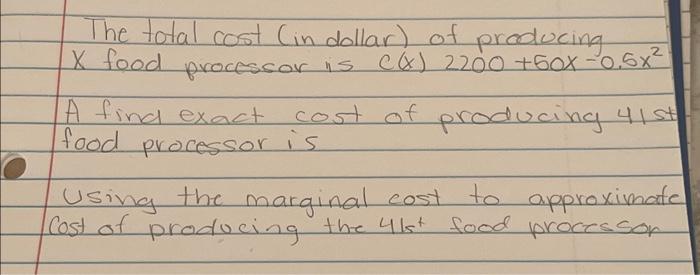 The total cost (in dollar) of producing
X food processor is C(x) 2200 +50x-0.5x²
A find exact cost of producing 41st
food processor is
Using the marginal cost to approximate
Cost of producing the 41st food processor